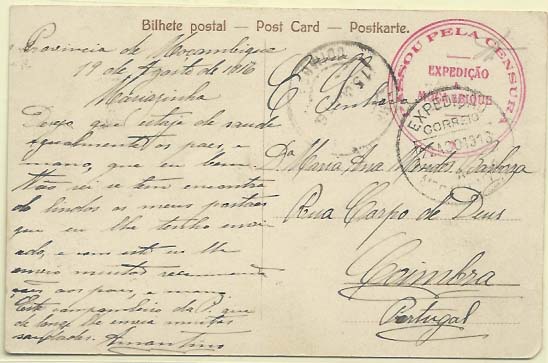 Bilhete postal — Post Card — Postkarte.
Provincia de Moçambique
19 de Agosto de 1916
Mariazinha
Desejo que esteja de saude
egualmente os paes, e
mano, que eu bem.
Não sei se tem encontra
do lindos os meus postaes
que eu lhe tenho envi
ado, e com este lhe
envio muitas recomenda
ções aos paes, e mano
Este companheiro da P. que
de longe lhe envia muitas
saudades. Amantino
PASSOU PELA CENSURA
EXPEDIÇÃO
A
MOÇAMBIQUE
EXPEDIÇÃO
CORREIO
D. Maria Ana Mendes Barboza
Rua Corpo de Deus
Coimbra
Portugal